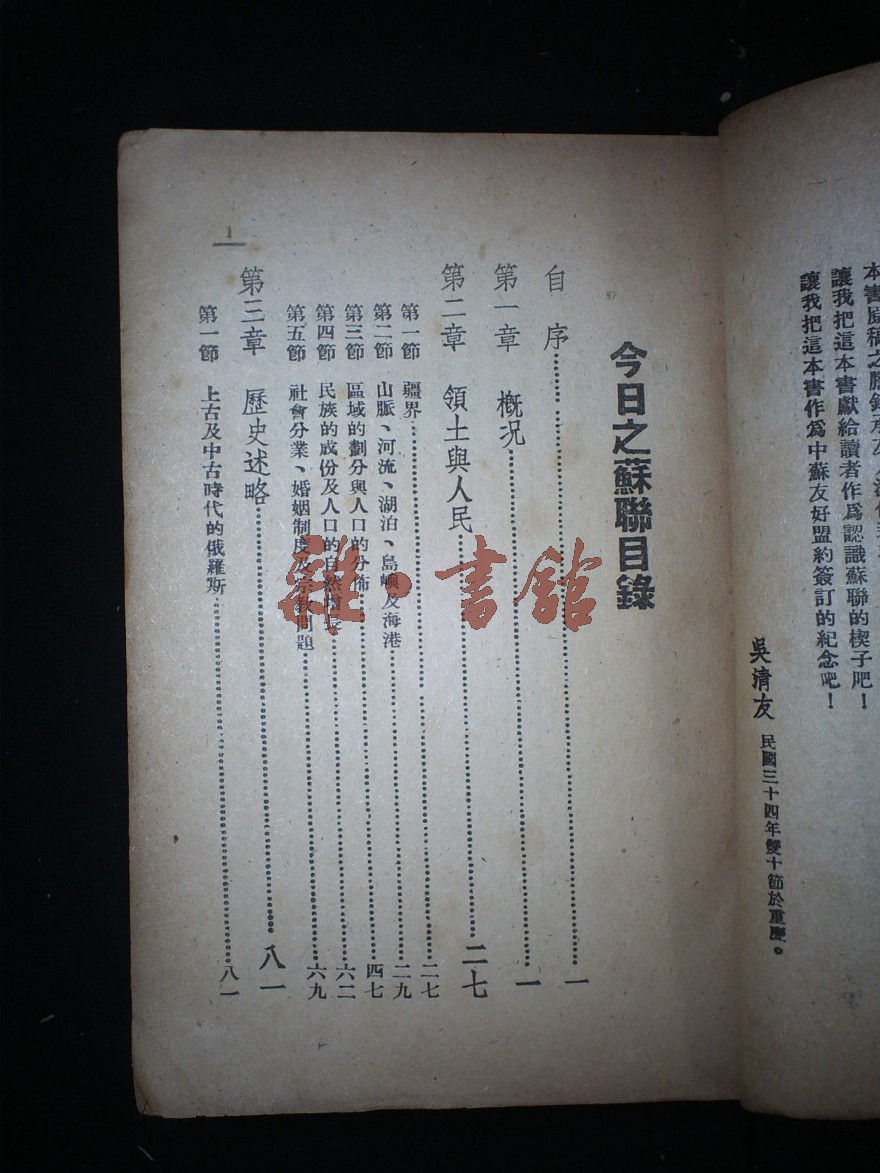 讓我把這本書獻給讀者作爲認識蘇聯的楔子吧！
讓我把這本書作爲中蘇友好盟約簽訂的紀念吧！
吳清友 民國三十四年雙十節於重慶。
今日之蘇聯目錄
自序……一
第一章 概況……一
第二章 領土與人民……二七
第一節 疆界……二七
第二節 山脈、河流、湖泊、島嶼及海港……二九
第三節 區域的劃分與人口的分佈……四七
第四節 民族的成份及人口的自然增長……六二
第五節 社會分業、婚姻制度及宗教問題……六九
第三章 歷史述略……八一
第一節 上古及中古時代的俄羅斯……八一
1
雜·書館